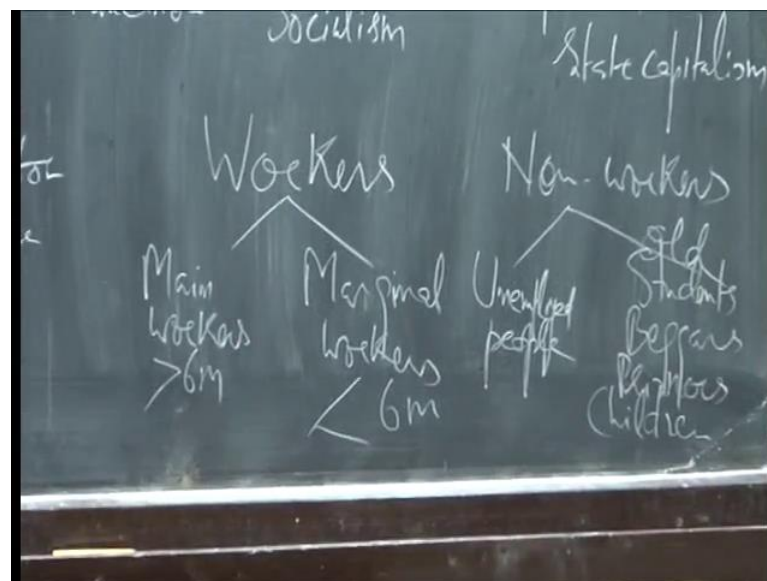 Socialism
State capitalism
Workers
Non-workers
Main
workers
>6m
Marginal
workers
< 6m
Unemployed
people
old
Students
Beggars
Children